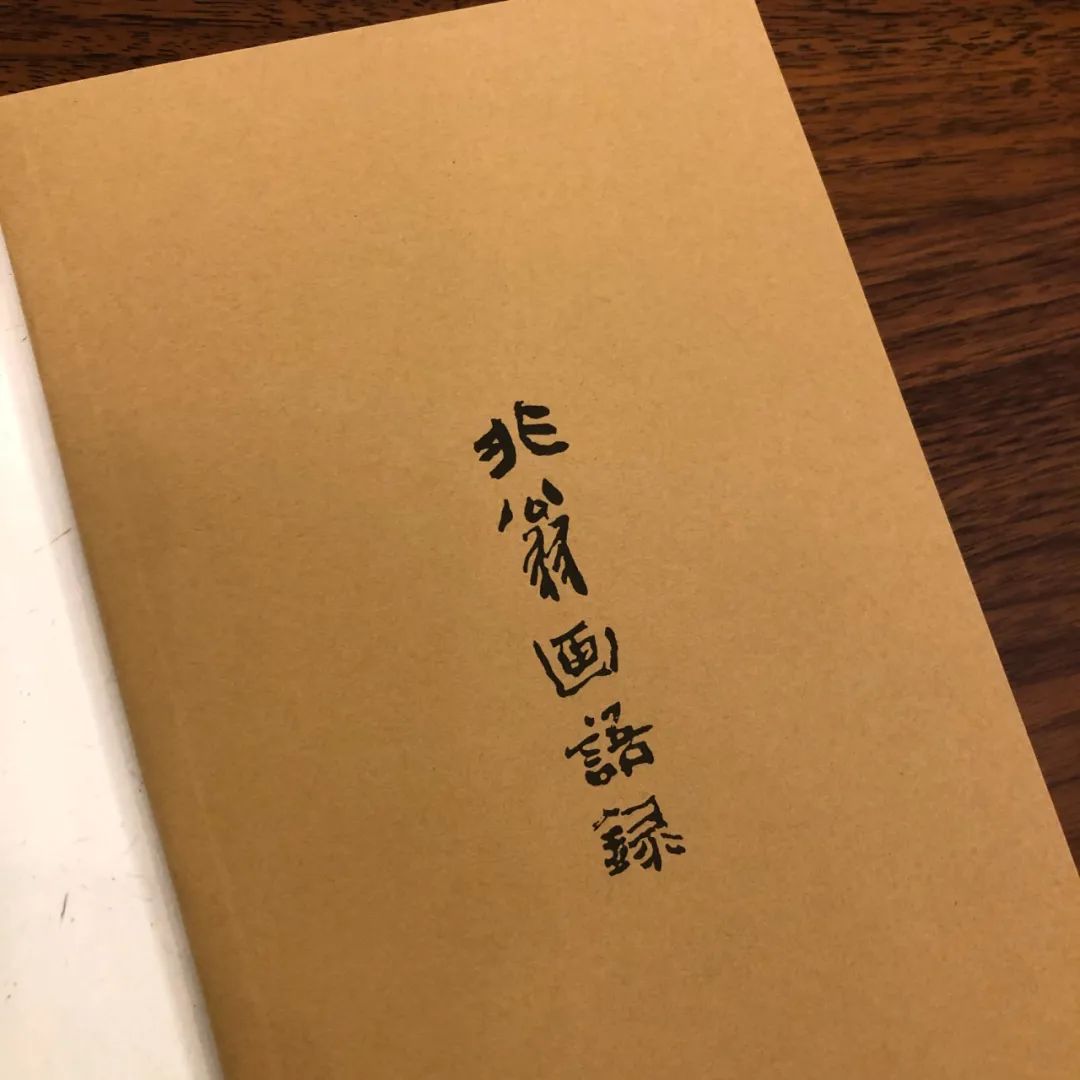 非翁画語録